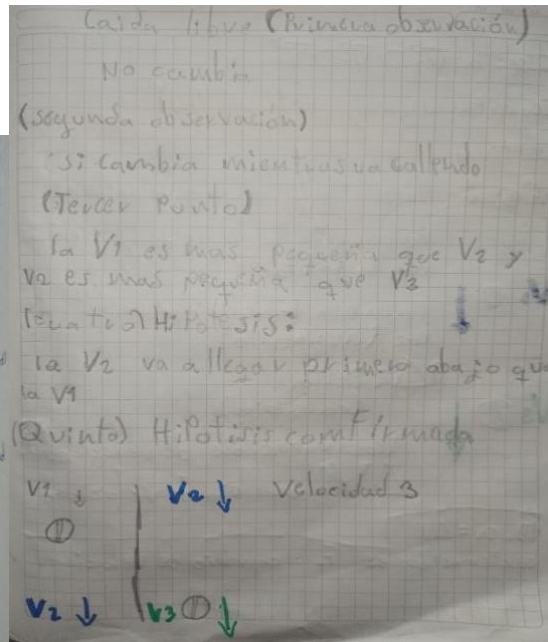 Caida libre (Primera observación)
No cambia
(segunda observación)
si cambia mientras va callendo
(Tercer Punto)
la V1 es mas pequeña que V2 y
V2 es mas pequeña que V3
(cuatro) Hipotesis:
la V2 va allegar primero abajo que
la V1
(Quinto) Hipotisis comfirmada
V1 ↓ V2 ↓ Velocidad 3
V2 ↓ V3 ↓